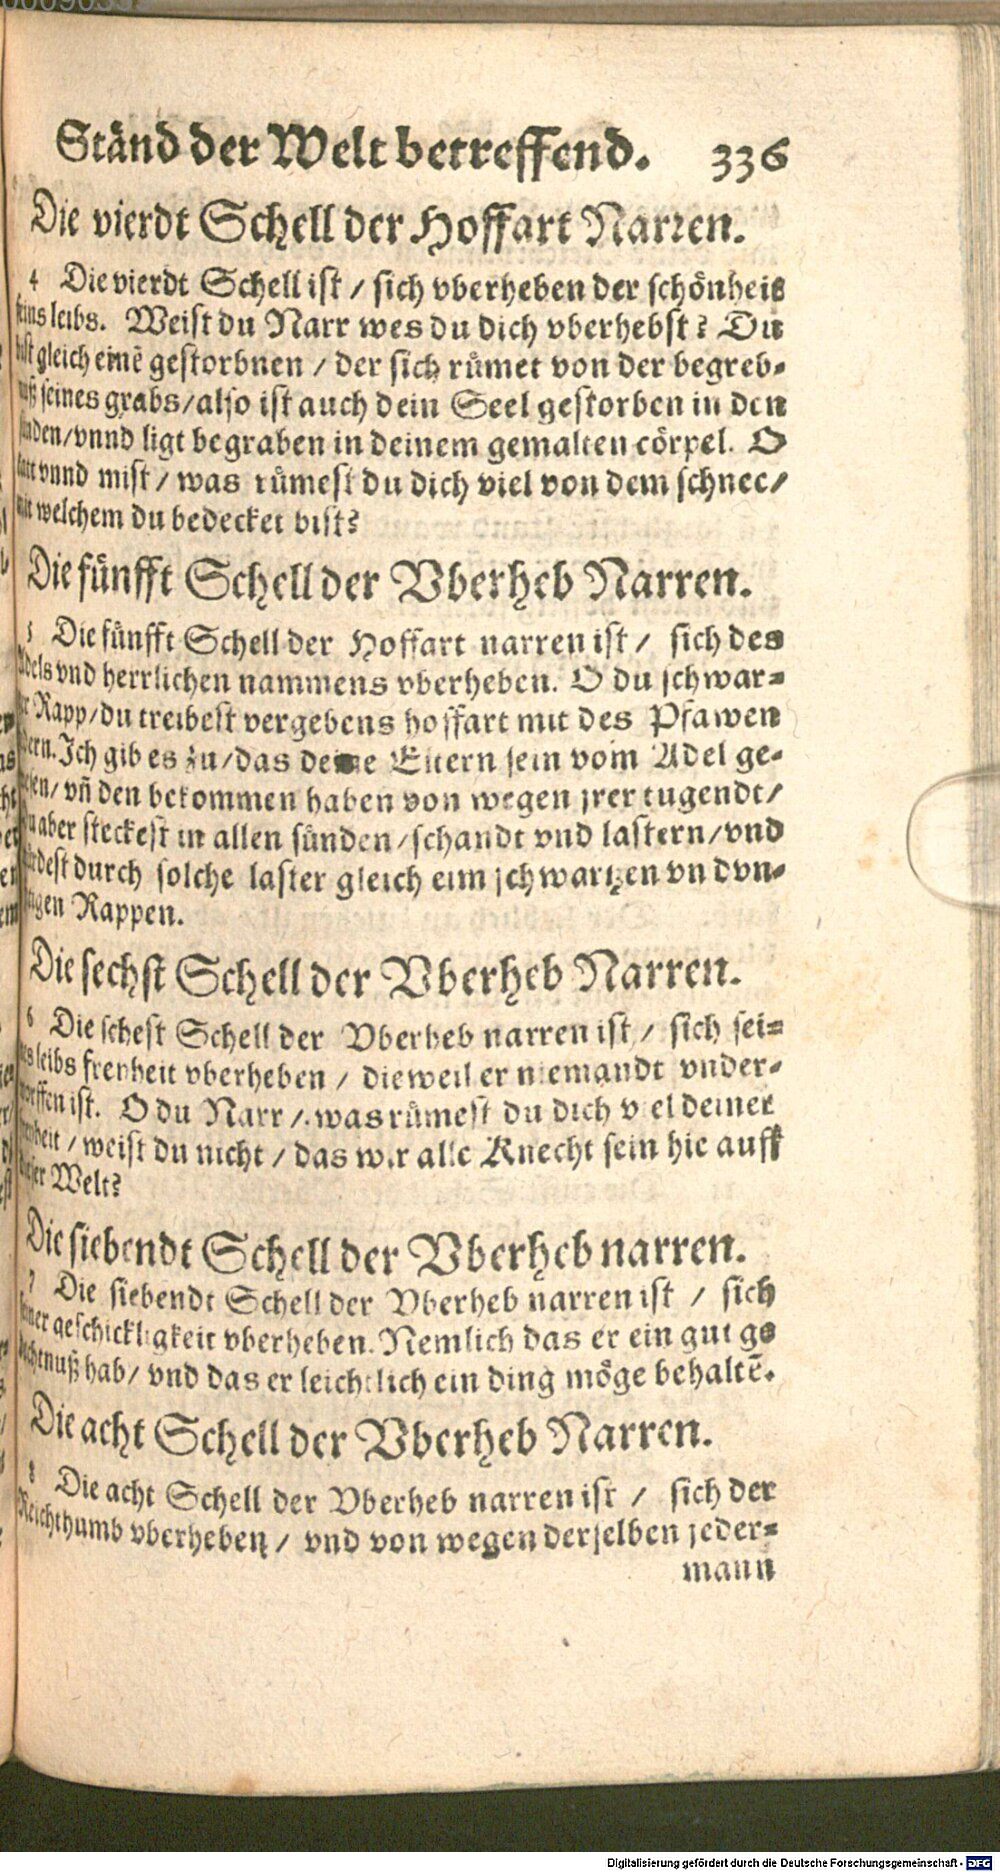 Ständ der Welt betreffend. 336
Die vierdt Schell der Hoffart Narren.
4 Die vierdt Schell ist / sich vberheben der schönheit
seins leibs. Weist du Narr wes du dich vberhebst? Du
bist gleich einē gestorbnen / der sich růmet von der begreb-
nuß seines grabs / also ist auch dein Seel gestorben in den
sünden / vnnd ligt begraben in deinem gemalten cörpel. O
vnnd mist / was růmest du dich viel von dem schnee /
mit welchem du bedecket bist?
Die fünfft Schell der Vberheb Narren.
5 Die fünfft Schell der Hoffart narren ist / sich des
Adels vnd herrlichen nammens vberheben. O du schwar-
tzer Rapp / du treibest vergebens hoffart mit des Pfawen
federn. Ich gib es zu / das deine Eltern sein vom Adel ge-
wesen / vñ den bekommen haben von wegen jrer tugendt /
du aber steckest in allen sünden / schandt vnd lastern / vnd
würdest durch solche laster gleich eim schwartzen vn dvn-
Rappen.
Die sechst Schell der Vberheb Narren.
6 Die sehest Schell der Vberheb narren ist / sich sei-
nes leibs freyheit vberheben / dieweil er niemandt vnder-
worffen ist. O du Narr / was růmest du dich viel deiner
freyheit / weist du nicht / das wir alle Knecht sein hie auff
dieser Welt?
Die siebendt Schell der Vberheb narren.
7 Die siebendt Schell der Vberheb narren ist / sich
seiner geschickligkeit vberheben. Nemlich das er ein gut ge
dechtnuß hab / vnd das er leichtlich ein ding möge behaltē.
Die acht Schell der Vberheb Narren.
8 Die acht Schell der Vberheb narren ist / sich der
Reichthumb vberheben / vnd von wegen derselben jeder-
mann
Digitalisierung gefördert durch die Deutsche Forschungsgemeinschaft - DFG